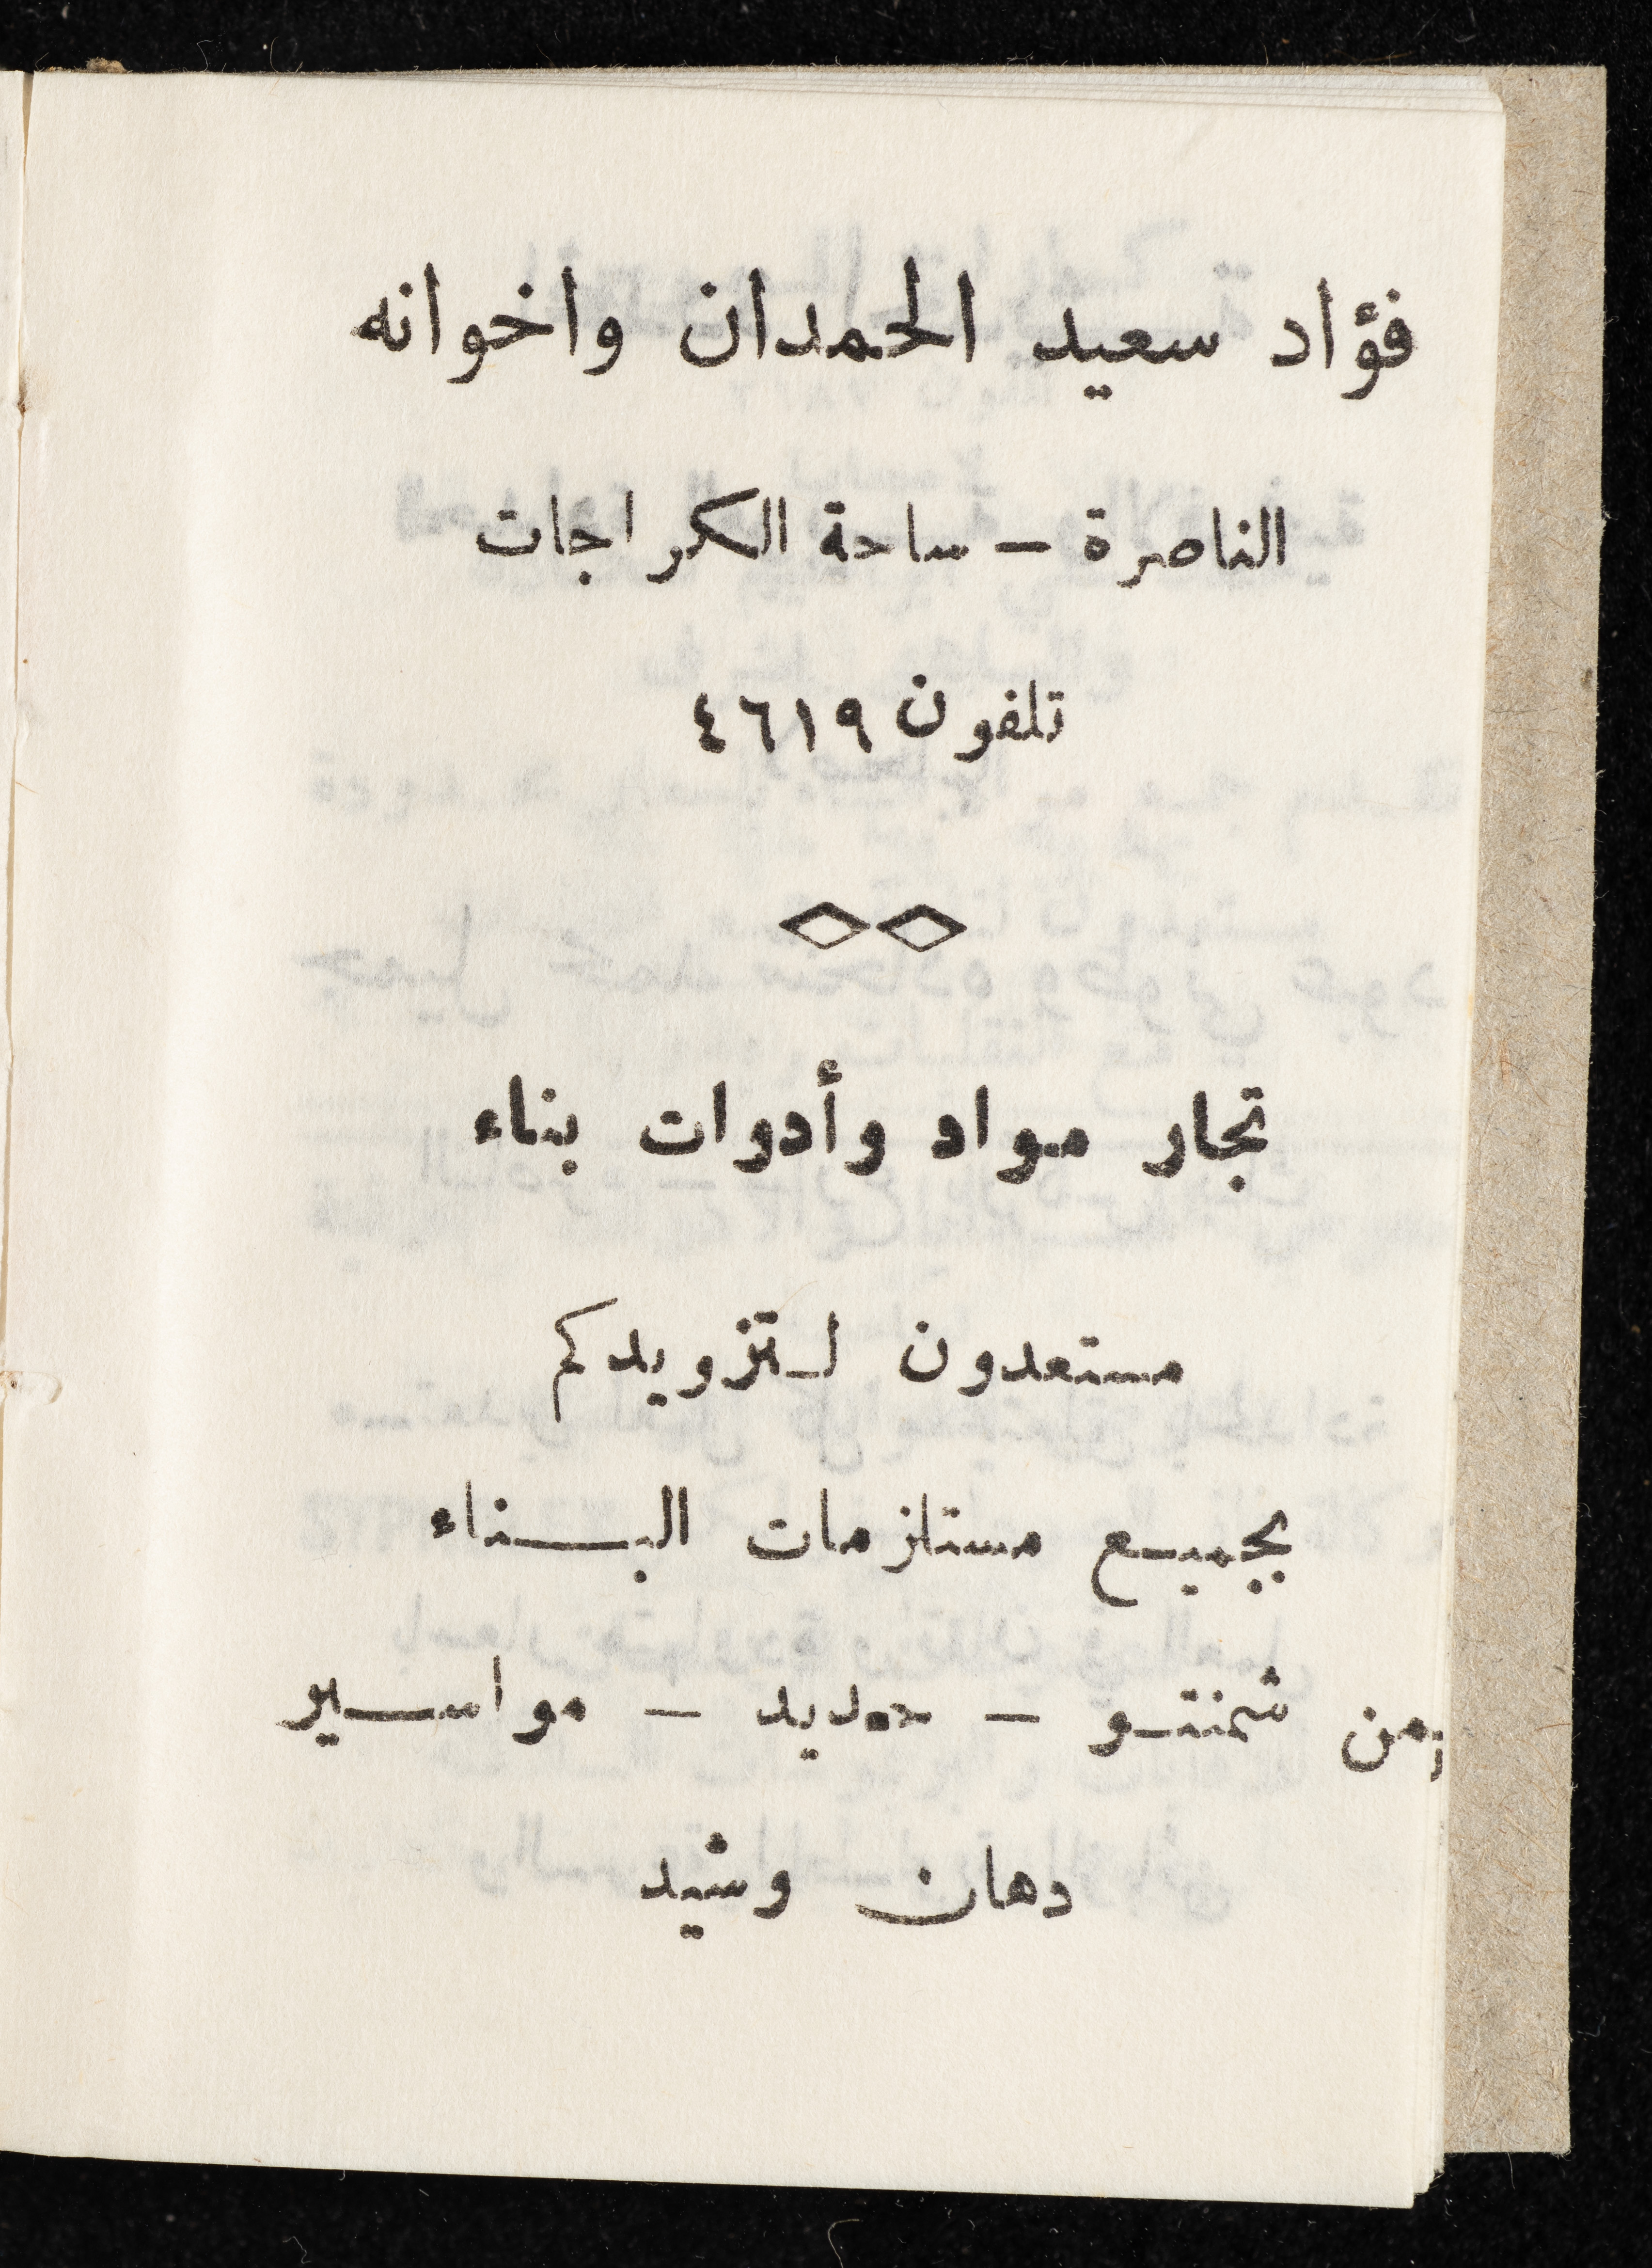 فؤاد سعيد الحمدان واخوانه
الناصرة – ساحة الكراجات
تلفون ٤٦١٩
تجار مواد وأدوات بناء
مستعدون لـتزويدكم
بجميـع مستلزمات البـــناء
من شمنتـو – حديد – مواســير
دهان وشيد